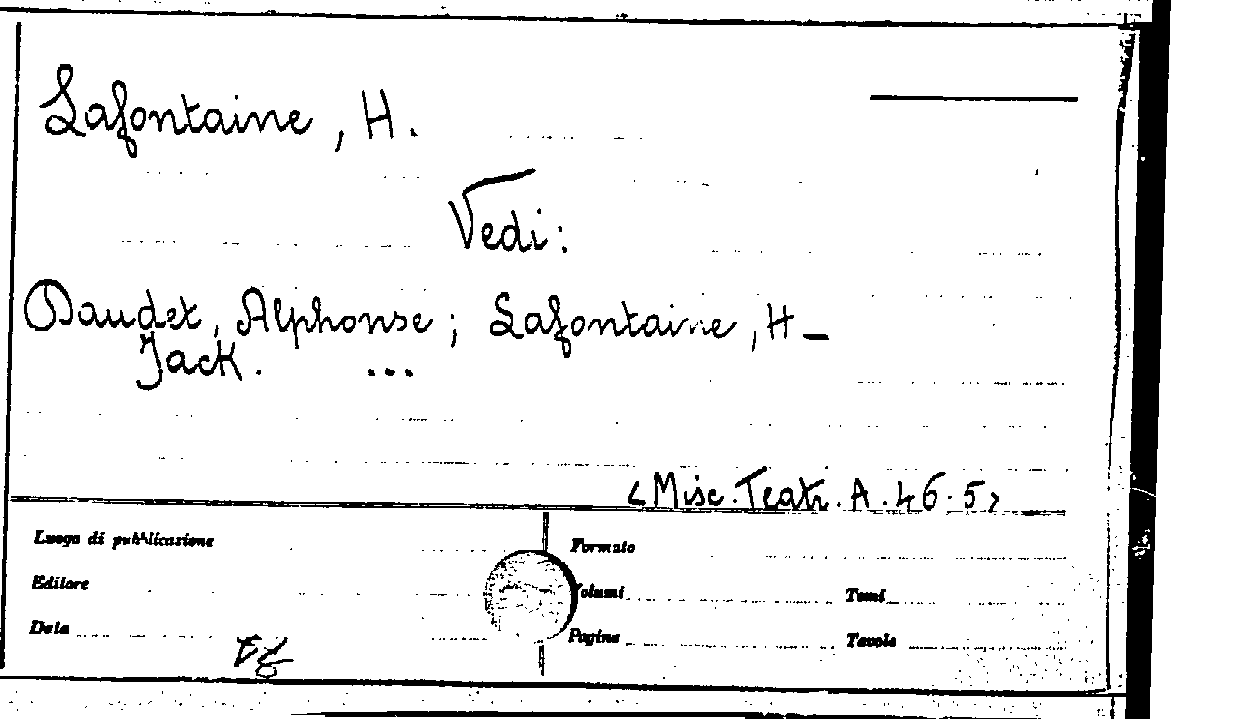 Lafontaine, H.
Vedi:
Daudet, Alphonse; Lafontaine, H_
Jack. ...
<Misc. Teatr. A. 46.5>
Luogo di pubblicazione
Formato
Editore
Volumi
Tomi
Data
Pagine
Tavole